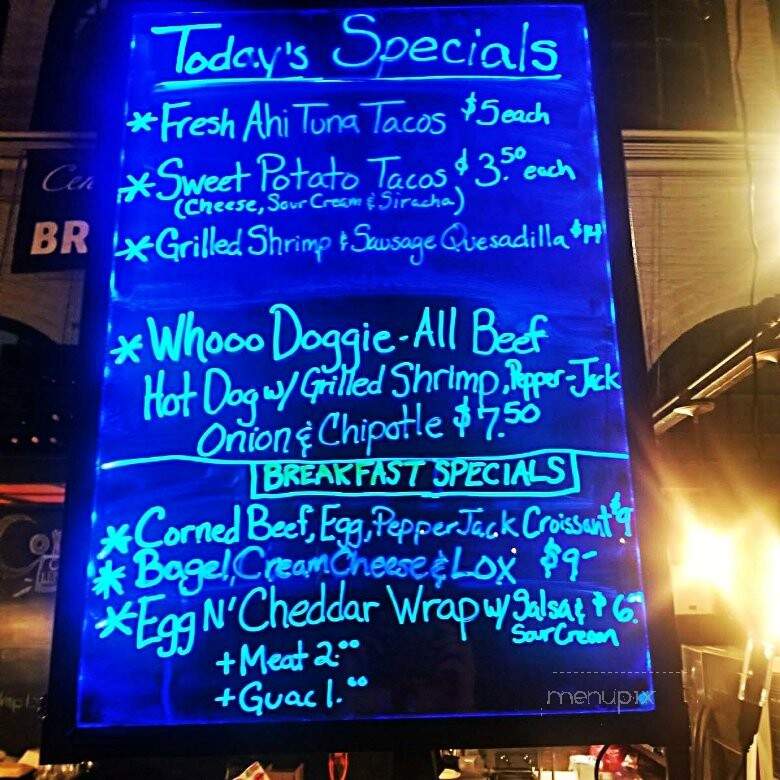 Today's Specials
*Fresh Ahi Tuna Tacos $5 each
*Sweet Potato Tacos $3.50 each
(Cheese, Sour Cream & Siracha)
*Grilled Shrimp & Sausage Quesadilla $14
*Whooo Doggie - All Beef
Hot Dog w/ Grilled Shrimp, Pepper-Jack
Onion & Chipotle $7.50
BREAKFAST SPECIALS
*Corned Beef, Egg, Pepper Jack Croissant $9
*Bagel, Cream Cheese & Lox $9-
*Egg N' Cheddar Wrap w/ Salsa & $6.
Sour Cream
+Meat 2.00
+Guac 1.00
BR
menupix